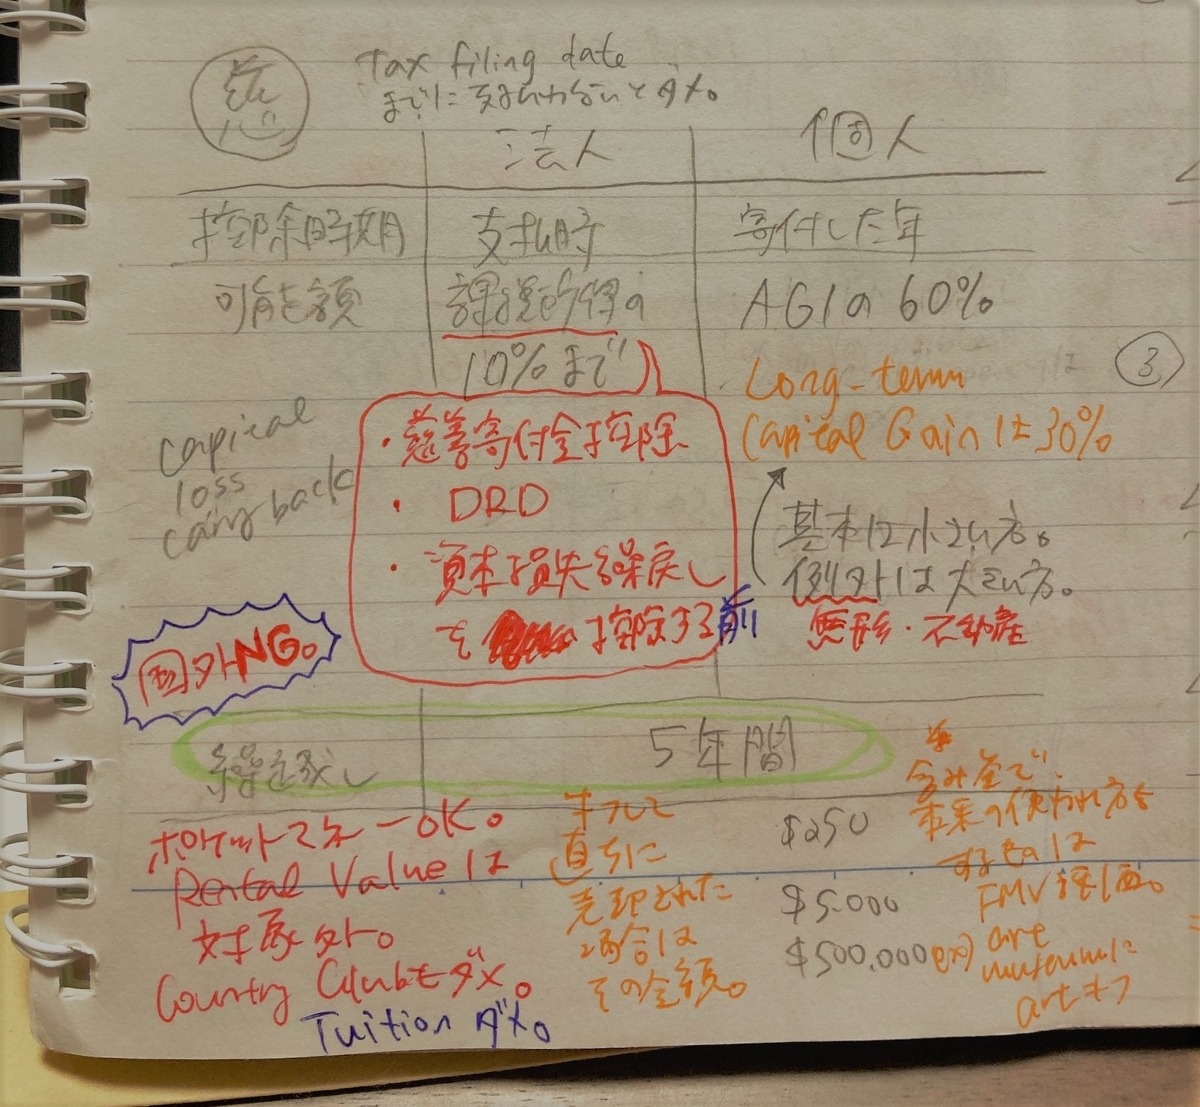 慈
Tax filing date
までに支払わないとダメ。
法人 個人
控除時期 支払時 寄付した年
可能額 課税所得の AGIの 60%
10%まで
Long-term
Capital Gainは30%
③
・慈善寄付金控除
・DRD
・資本損失繰戻し
を 控除する前
capital
loss
carry back
基本は小さい方。
例外は大きい方。
無形・不動産
国外NG。
繰越し 5年間
ポケットマネーOK。
Rental Valueは
対象外。
Country Clubもダメ。
Tuition ダメ。
すぐに
直ちに
売却された
場合は
その金額。
$250
$5.000
$500,000
含み益で
本来の使われ方を
するものは
FMV評価。
ex) art
museumに
art